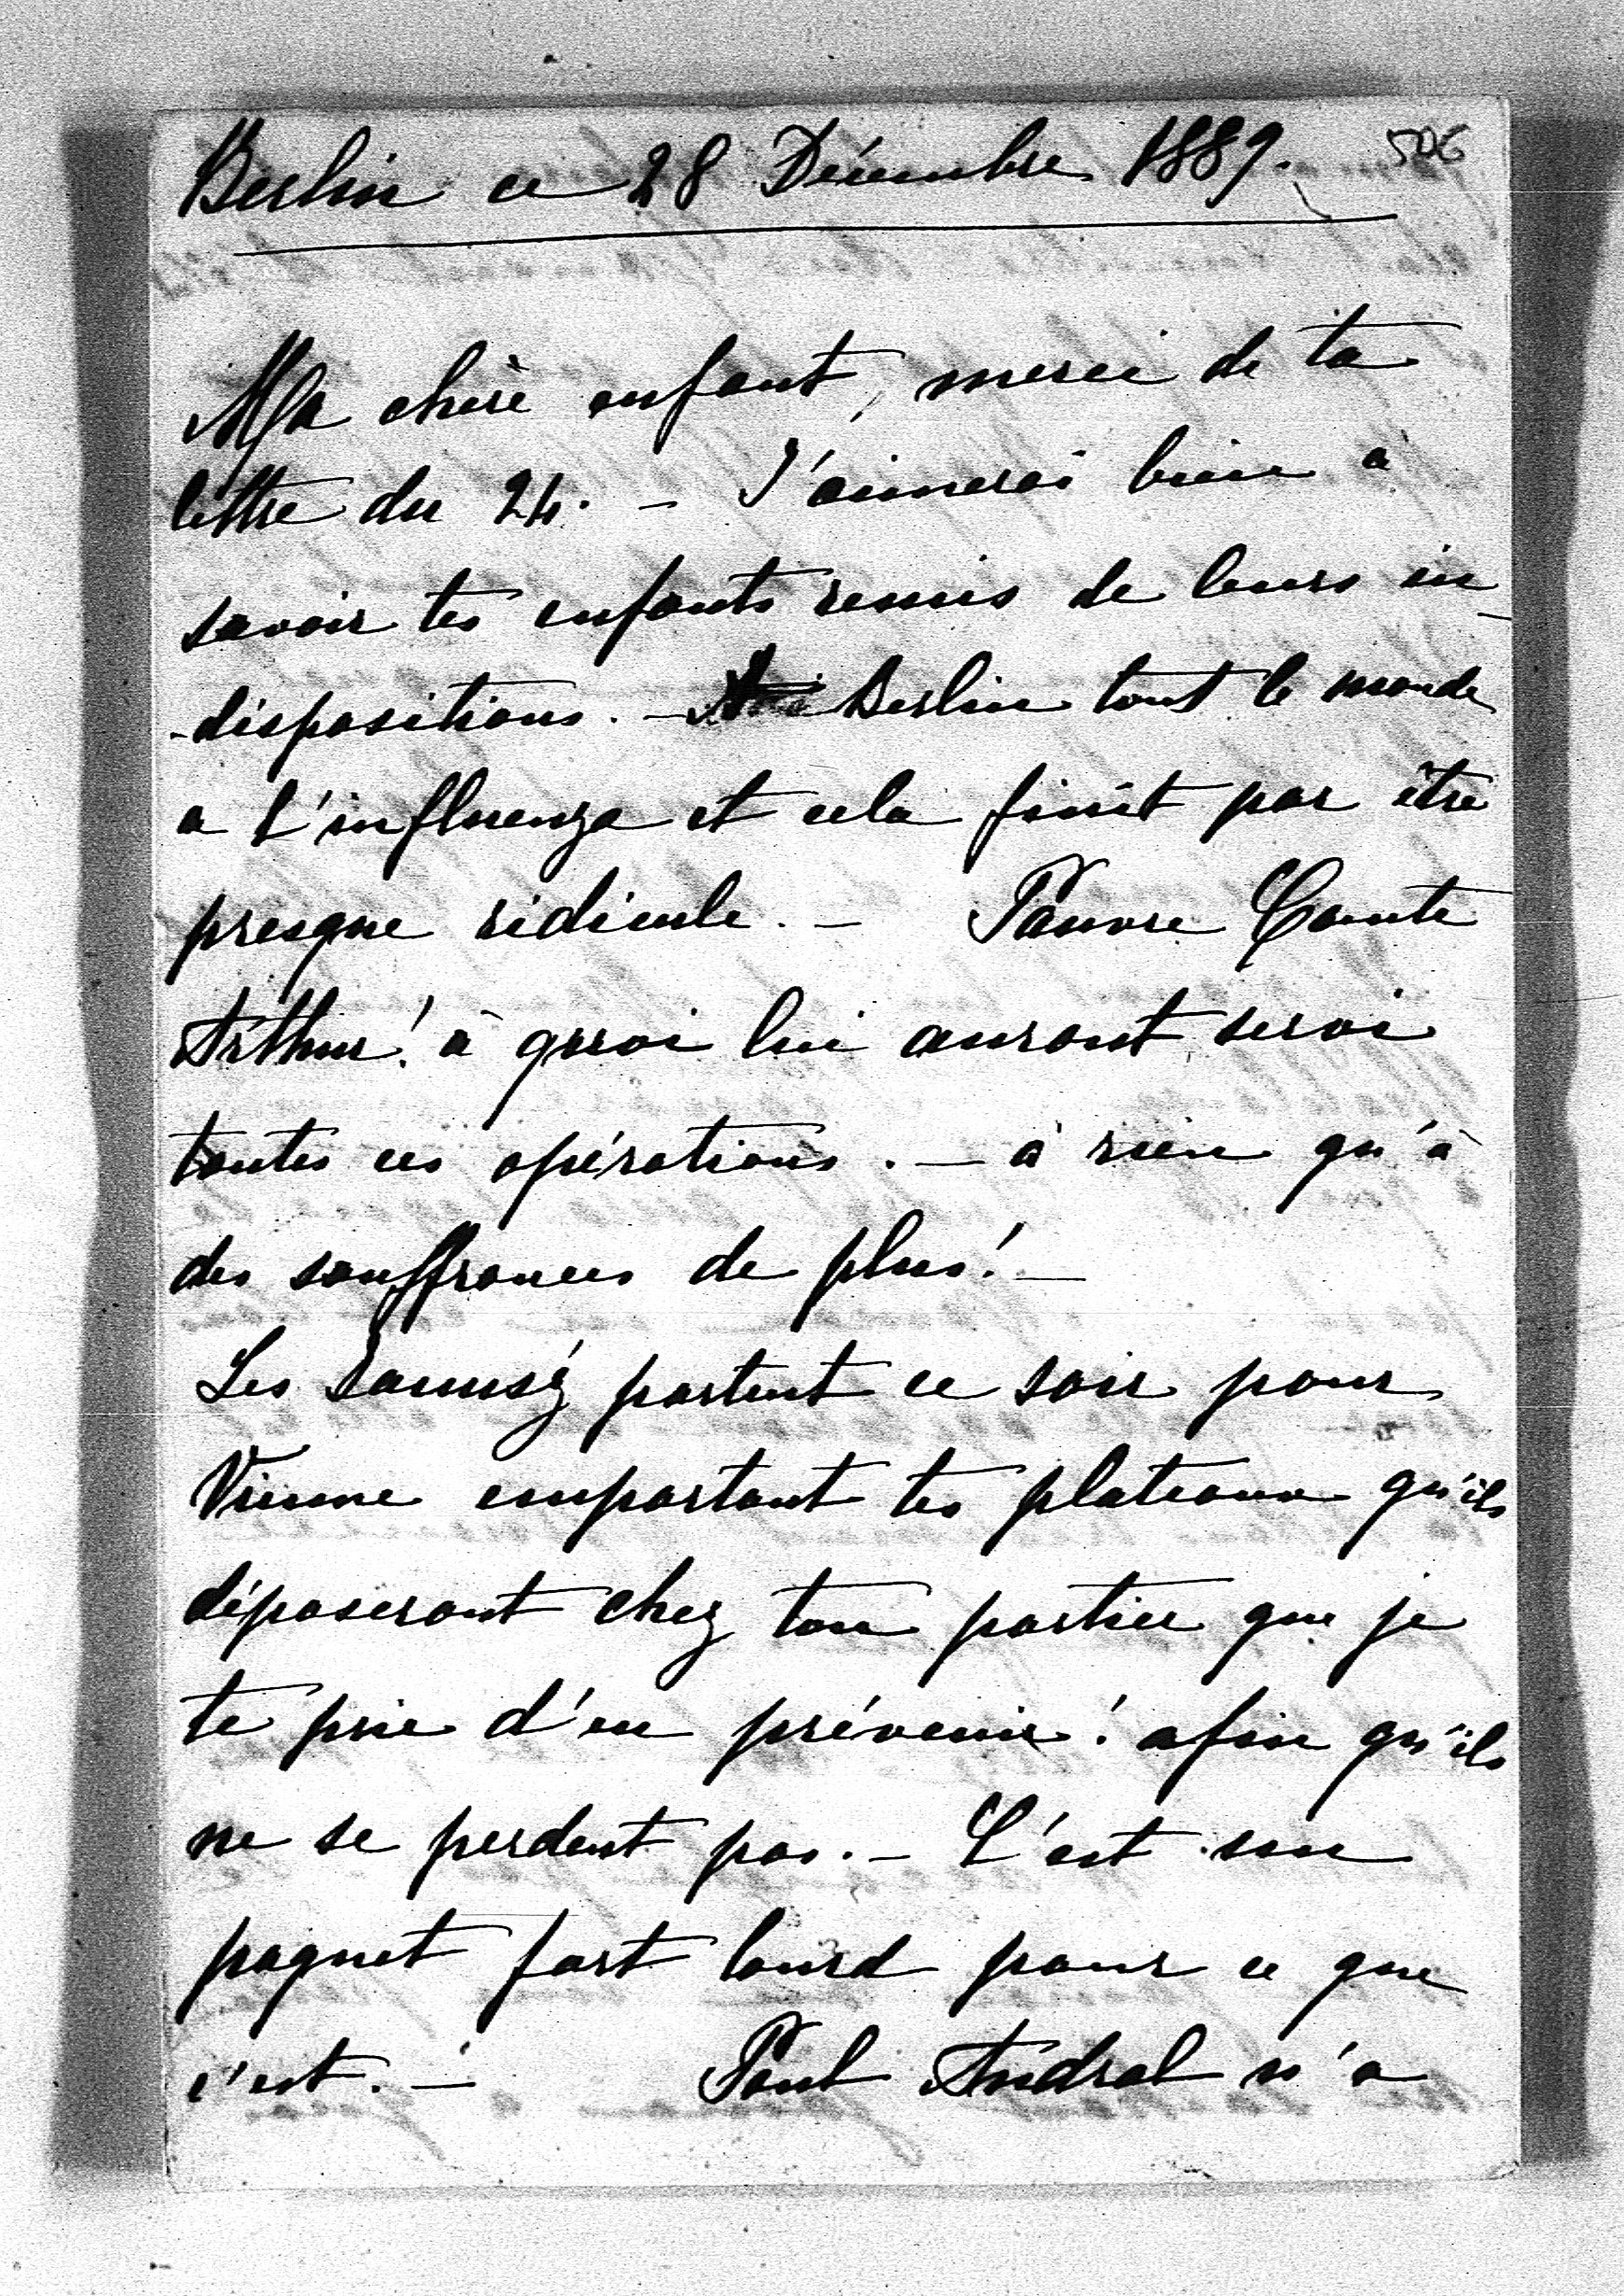 Berlin ce 28 Décembre 1889.
506
Ma chère enfant, merci de ta
lettre du 24. – J'aimerai bien à
savoir tes enfants remis de leurs in-
-dispositions. – Berlin tout le monde
a l'influenza et cela finit par être
presque ridicule. – Pauvre Comte
Arthur! à quoi lui auront servi
toutes ces opérations. – à rien qu'à
des souffrances de plus! –
Les partent ce soir pour
Vienne emportant tes plateaux qu'ils
déposeront chez ton portier que je
te prie d'en prévenir! afin qu'ils
ne se perdent pas. – C'est un
paquet fort lourd pour ce que
c'est. – Paul Andral n'a